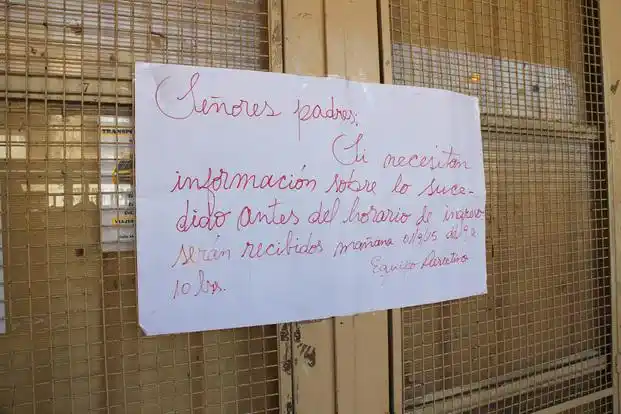 Señores padres:
Si necesitan
información sobre lo suce-
dido antes del horario de ingreso
serán recibidos mañana 01/9/15 de 9 a
10 hs.
Equipo Directivo
TRANSP